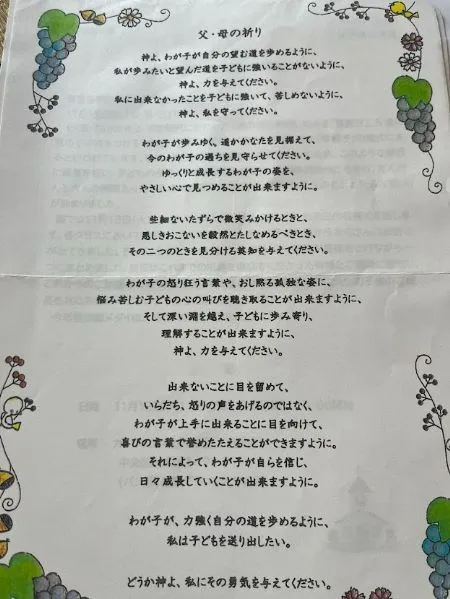 父・母の祈り
神よ、わが子が自分の望む道を歩めるように、
私が歩みたいと望んだ道を子どもに強いることがないように、
神よ、力を与えてください。
私に出来なかったことを子どもに強いて、苦しめないように、
神よ、私を守ってください。
わが子が歩みゆく、遥かかなたを見据えて、
今のわが子の過ちを見守らせてください。
ゆっくりと成長するわが子の姿を、
やさしい心で見つめることが出来ますように。
些細ないたずらで微笑みかけるときと、
悪しきおこないを毅然とたしなめるべきとき、
その二つのときを見分ける英知を与えてください。
わが子の怒り狂う言葉や、おし黙る孤独な姿に、
悩み苦しむ子どもの心の叫びを聴き取ることが出来ますように、
そして深い淵を越え、子どもに歩み寄り、
理解することが出来ますように、
神よ、力を与えてください。
出来ないことに目を留めて、
いらだち、怒りの声をあげるのではなく、
わが子が上手に出来ることに目を向けて、
喜びの言葉で誉めたたえることができますように。
それによって、わが子が自らを信じ、
日々成長していくことが出来ますように。
わが子が、力強く自分の道を歩めるように、
私は子どもを送り出したい。
どうか神よ、私にその勇気を与えてください。